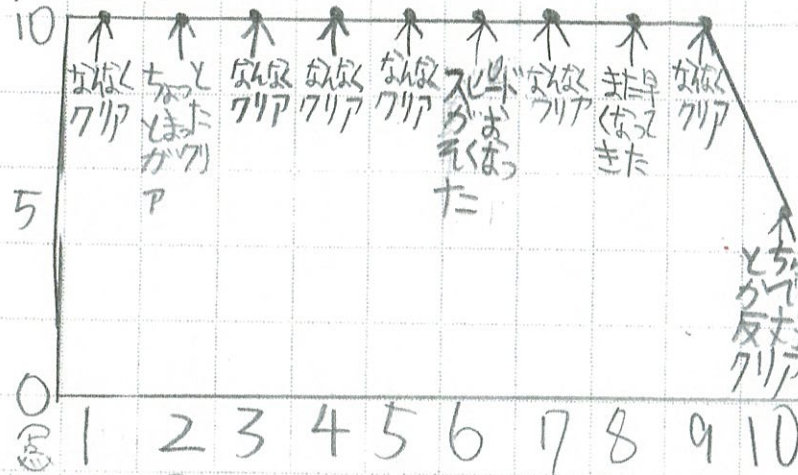 10
なんなく
クリア
ちょっと
とまった
がクリ
ア
なんなく
クリア
なんなく
クリア
なんなく
クリア
スピード
がお
そくなっ
た
なんなく
クリア
また早
くなって
きた
なんなく
クリア
5
クリア
0
1 2 3 4 5 6 7 8 9 10